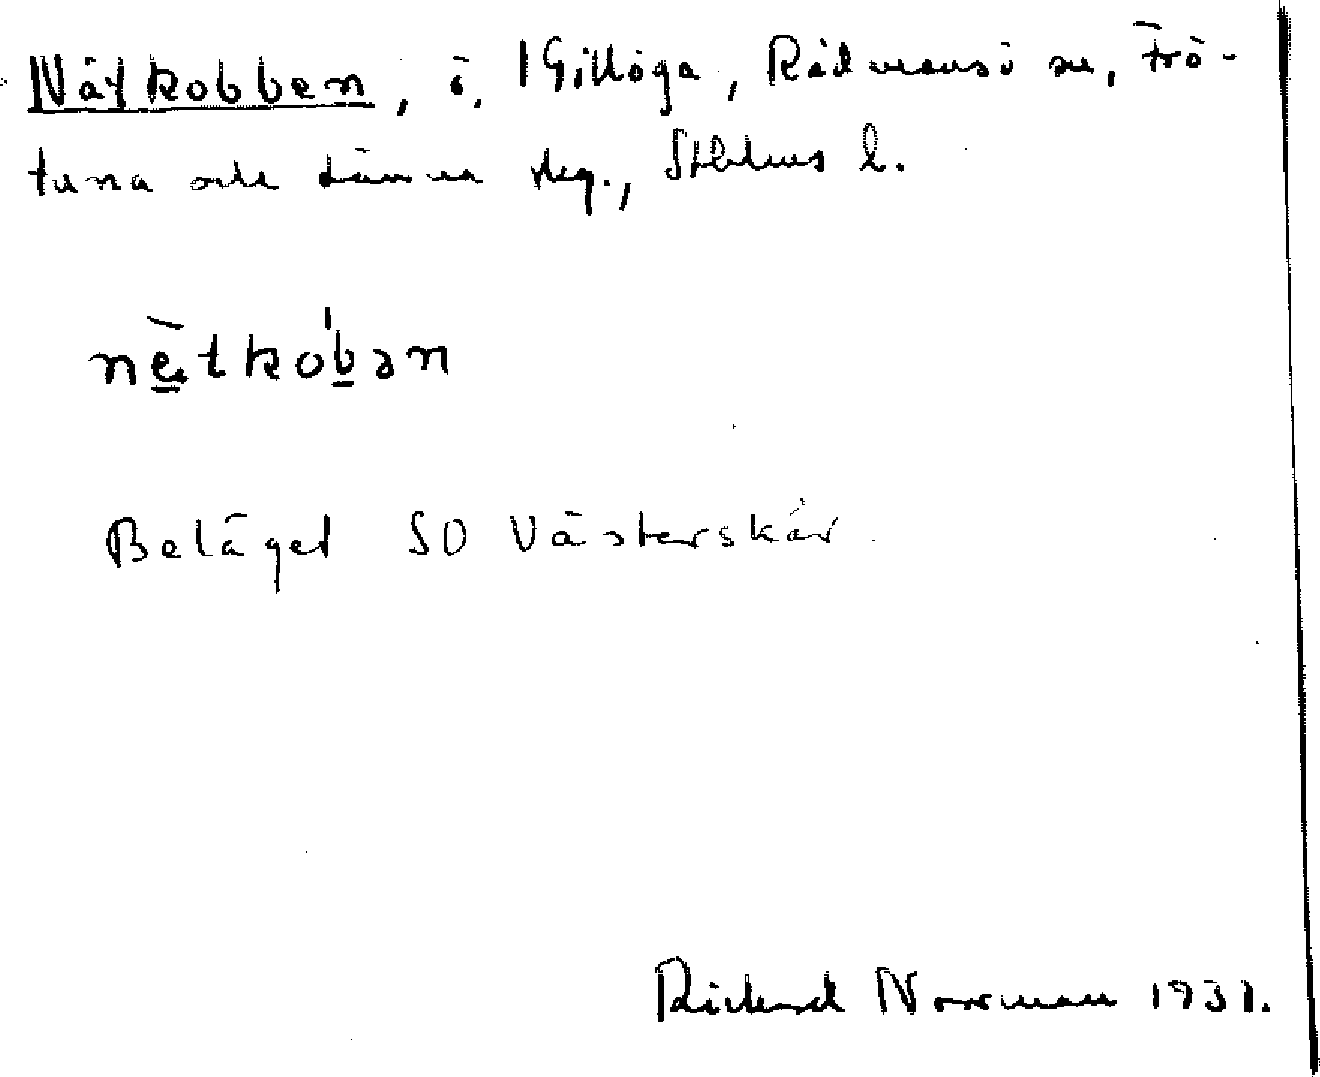 Nätkobben, ö, I Gillöga, Rådmansö sn, Frö-
tuna och Länna skg., Sthlms l.
nètkòb̲ən
Beläget SO Västerskär.
Rickard Norrman